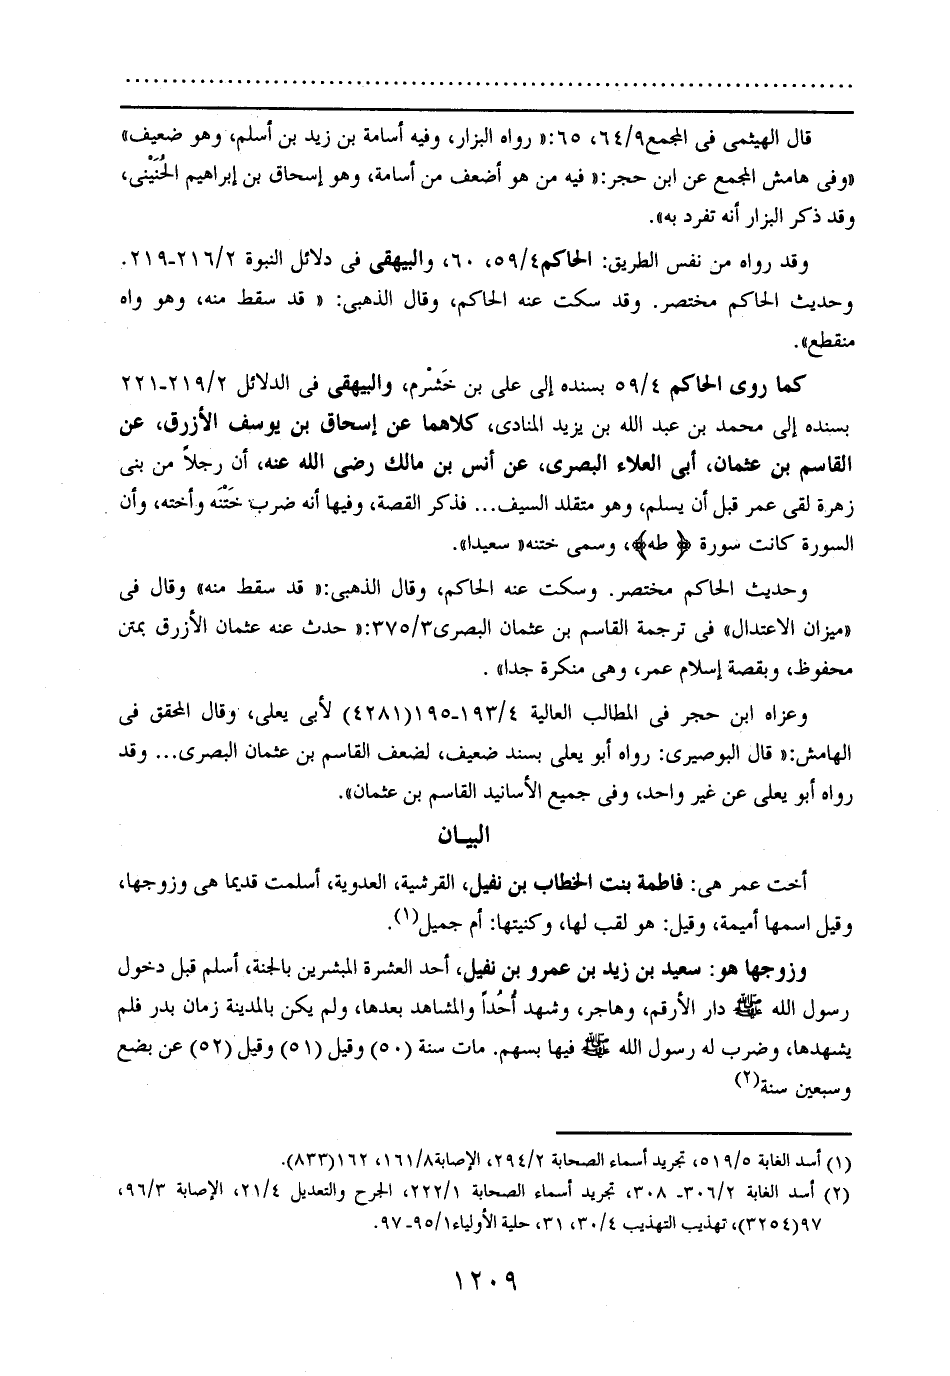 قال الهيثمى فى المجمع٩/ ٦٤، ٦٥:« رواه البزار، وفيه أسامة بن زيد بن أسلم، وهو ضعيف»
«وفى هامش المجمع عن ابن حجر:« فيه من هو أضعف من أسامة، وهو إسحاق بن إبراهيم الحُنَيْنى،
وقد ذكر البزار أنه تفرد به».
وقد رواه من نفس الطريق: الحاكم٤/ ٥٩، ٦٠، والبيهقى فى دلائل النبوة ٢/ ٢١٦-٢١٩.
وحديث الحاكم مختصر. وقد سكت عنه الحاكم، وقال الذهبى: « قد سقط منه، وهو واه
منقطع».
كما روى الحاكم ٤/ ٥٩ بسنده إلى على بن خَشْرم، والبيهقى فى الدلائل ٢/ ٢١٩-٢٢١
بسنده إلى محمد بن عبد الله بن يزيد المنادى، كلاهما عن إسحاق بن يوسف الأزرق، عن
القاسم بن عثمان، أبى العلاء البصرى، عن أنس بن مالك رضى الله عنه، أن رجلاً من بنى
زهرة لقى عمر قبل أن يسلم، وهو متقلد السيف... فذكر القصة، وفيها أنه ضرب خَتْنَه وأخته، وأن
السورة كانت سورة ﴿ طه﴾، وسمى ختنه« سعيدا».
وحديث الحاكم مختصر. وسكت عنه الحاكم، وقال الذهبى:« قد سقط منه» وقال فى
«ميزان الاعتدال» فى ترجمة القاسم بن عثمان البصرى٣/ ٣٧٥:« حدث عنه عثمان الأزرق بمتن
محفوظ، وبقصة إسلام عمر، وهى منكرة جدا» .
وعزاه ابن حجر فى المطالب العالية ٤/ ١٩٣-١٩٥(٤٢٨١) لأبى يعلى، وقال المحقق فى
الهامش:« قال البوصيرى: رواه أبو يعلى بسند ضعيف، لضعف القاسم بن عثمان البصرى... وقد
رواه أبو يعلى عن غير واحد، وفى جميع الأسانيد القاسم بن عثمان».
البيـان
أخت عمر هى: فاطمة بنت الخطاب بن نفيل، القرشية، العدوية، أسلمت قديما هى وزوجها،
وقيل اسمها أميمة، وقيل: هو لقب لها، وكنيتها: أم جميل(١).
وزوجها هو: سعيد بن زيد بن عمرو بن نفيل، أحد العشرة المبشرين بالجنة، أسلم قبل دخول
رسول الله ﷺ دار الأرقم، وهاجر، وشهد أُحُداً والمشاهد بعدها، ولم يكن بالمدينة زمان بدر فلم
يشهدها، وضرب له رسول الله ﷺ فيها بسهم. مات سنة (٥٠) وقيل (٥١) وقيل (٥٢) عن بضع
وسبعين سنة(٢)
(١) أسد الغابة ٥/ ٥١٩، تجريد أسماء الصحابة ٢/ ٢٩٤، الإصابة٨/ ١٦١، ١٦٢(٨٣٣).
(٢) أسد الغابة ٢/ ٣٠٦- ٣٠٨، تجريد أسماء الصحابة ١/ ٢٢٢، الجرح والتعديل ٤/ ٢١، الإصابة ٣/ ٩٦،
٩٧(٣٢٥٤)، تهذيب التهذيب ٤/ ٣٠، ٣١، حلية الأولياء١/ ٩٥- ٩٧.
١٢٠٩